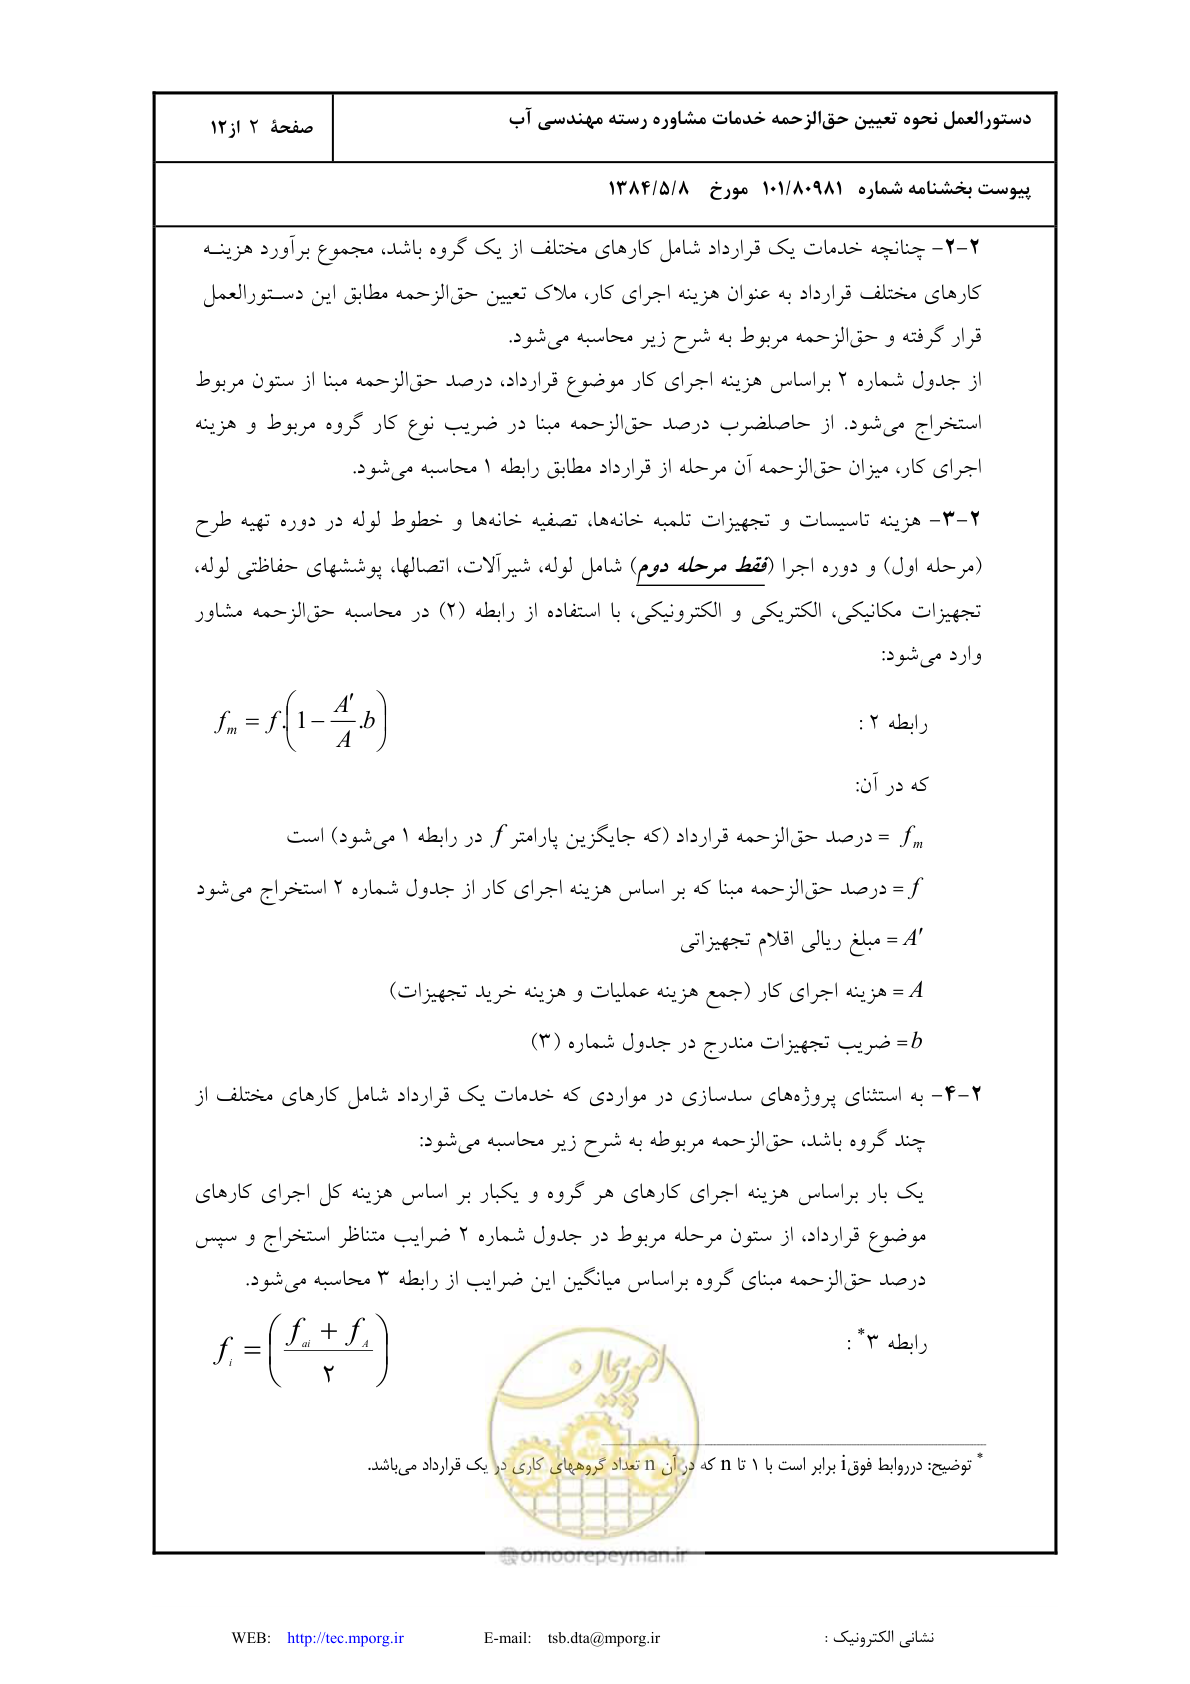 دستورالعمل نحوه تعیین حق‌الزحمه خدمات مشاوره رسته مهندسی آب
صفحهٔ ۲ از۱۲
پیوست بخشنامه شماره ۱۰۱/۸۰۹۸۱ مورخ ۱۳۸۴/۵/۸
۲-۲- چنانچه خدمات یک قرارداد شامل کارهای مختلف از یک گروه باشد، مجموع برآورد هزینـه
کارهای مختلف قرارداد به عنوان هزینه اجرای کار، ملاک تعیین حق‌الزحمه مطابق این دسـتورالعمل
قرار گرفته و حق‌الزحمه مربوط به شرح زیر محاسبه می‌شود.
از جدول شماره ۲ براساس هزینه اجرای کار موضوع قرارداد، درصد حق‌الزحمه مبنا از ستون مربوط
استخراج می‌شود. از حاصلضرب درصد حق‌الزحمه مبنا در ضریب نوع کار گروه مربوط و هزینه
اجرای کار، میزان حق‌الزحمه آن مرحله از قرارداد مطابق رابطه ۱ محاسبه می‌شود.
۲-۳- هزینه تاسیسات و تجهیزات تلمبه خانه‌ها، تصفیه خانه‌ها و خطوط لوله در دوره تهیه طرح
(مرحله اول) و دوره اجرا (فقط مرحله دوم) شامل لوله، شیرآلات، اتصالها، پوششهای حفاظتی لوله،
تجهیزات مکانیکی، الکتریکی و الکترونیکی، با استفاده از رابطه (۲) در محاسبه حق‌الزحمه مشاور
وارد می‌شود:
رابطه ۲ : f_m = f.(1 − A′/A .b)
که در آن:
f_m = درصد حق‌الزحمه قرارداد (که جایگزین پارامتر f در رابطه ۱ می‌شود) است
f = درصد حق‌الزحمه مبنا که بر اساس هزینه اجرای کار از جدول شماره ۲ استخراج می‌شود
A′ = مبلغ ریالی اقلام تجهیزاتی
A = هزینه اجرای کار (جمع هزینه عملیات و هزینه خرید تجهیزات)
b= ضریب تجهیزات مندرج در جدول شماره (۳)
۲-۴- به استثنای پروژه‌های سدسازی در مواردی که خدمات یک قرارداد شامل کارهای مختلف از
چند گروه باشد، حق‌الزحمه مربوطه به شرح زیر محاسبه می‌شود:
یک بار براساس هزینه اجرای کارهای هر گروه و یکبار بر اساس هزینه کل اجرای کارهای
موضوع قرارداد، از ستون مرحله مربوط در جدول شماره ۲ ضرایب متناظر استخراج و سپس
درصد حق‌الزحمه مبنای گروه براساس میانگین این ضرایب از رابطه ۳ محاسبه می‌شود.
رابطه ۳* : f_i = ((f_ai + f_A)/۲)
امور پیمان
* توضیح: درروابط فوقi برابر است با ۱ تا n که در آن n تعداد گروههای کاری در یک قرارداد می‌باشد.
@omoorepeyman.ir
نشانی الکترونیک : E-mail: tsb.dta@mporg.ir WEB: http://tec.mporg.ir